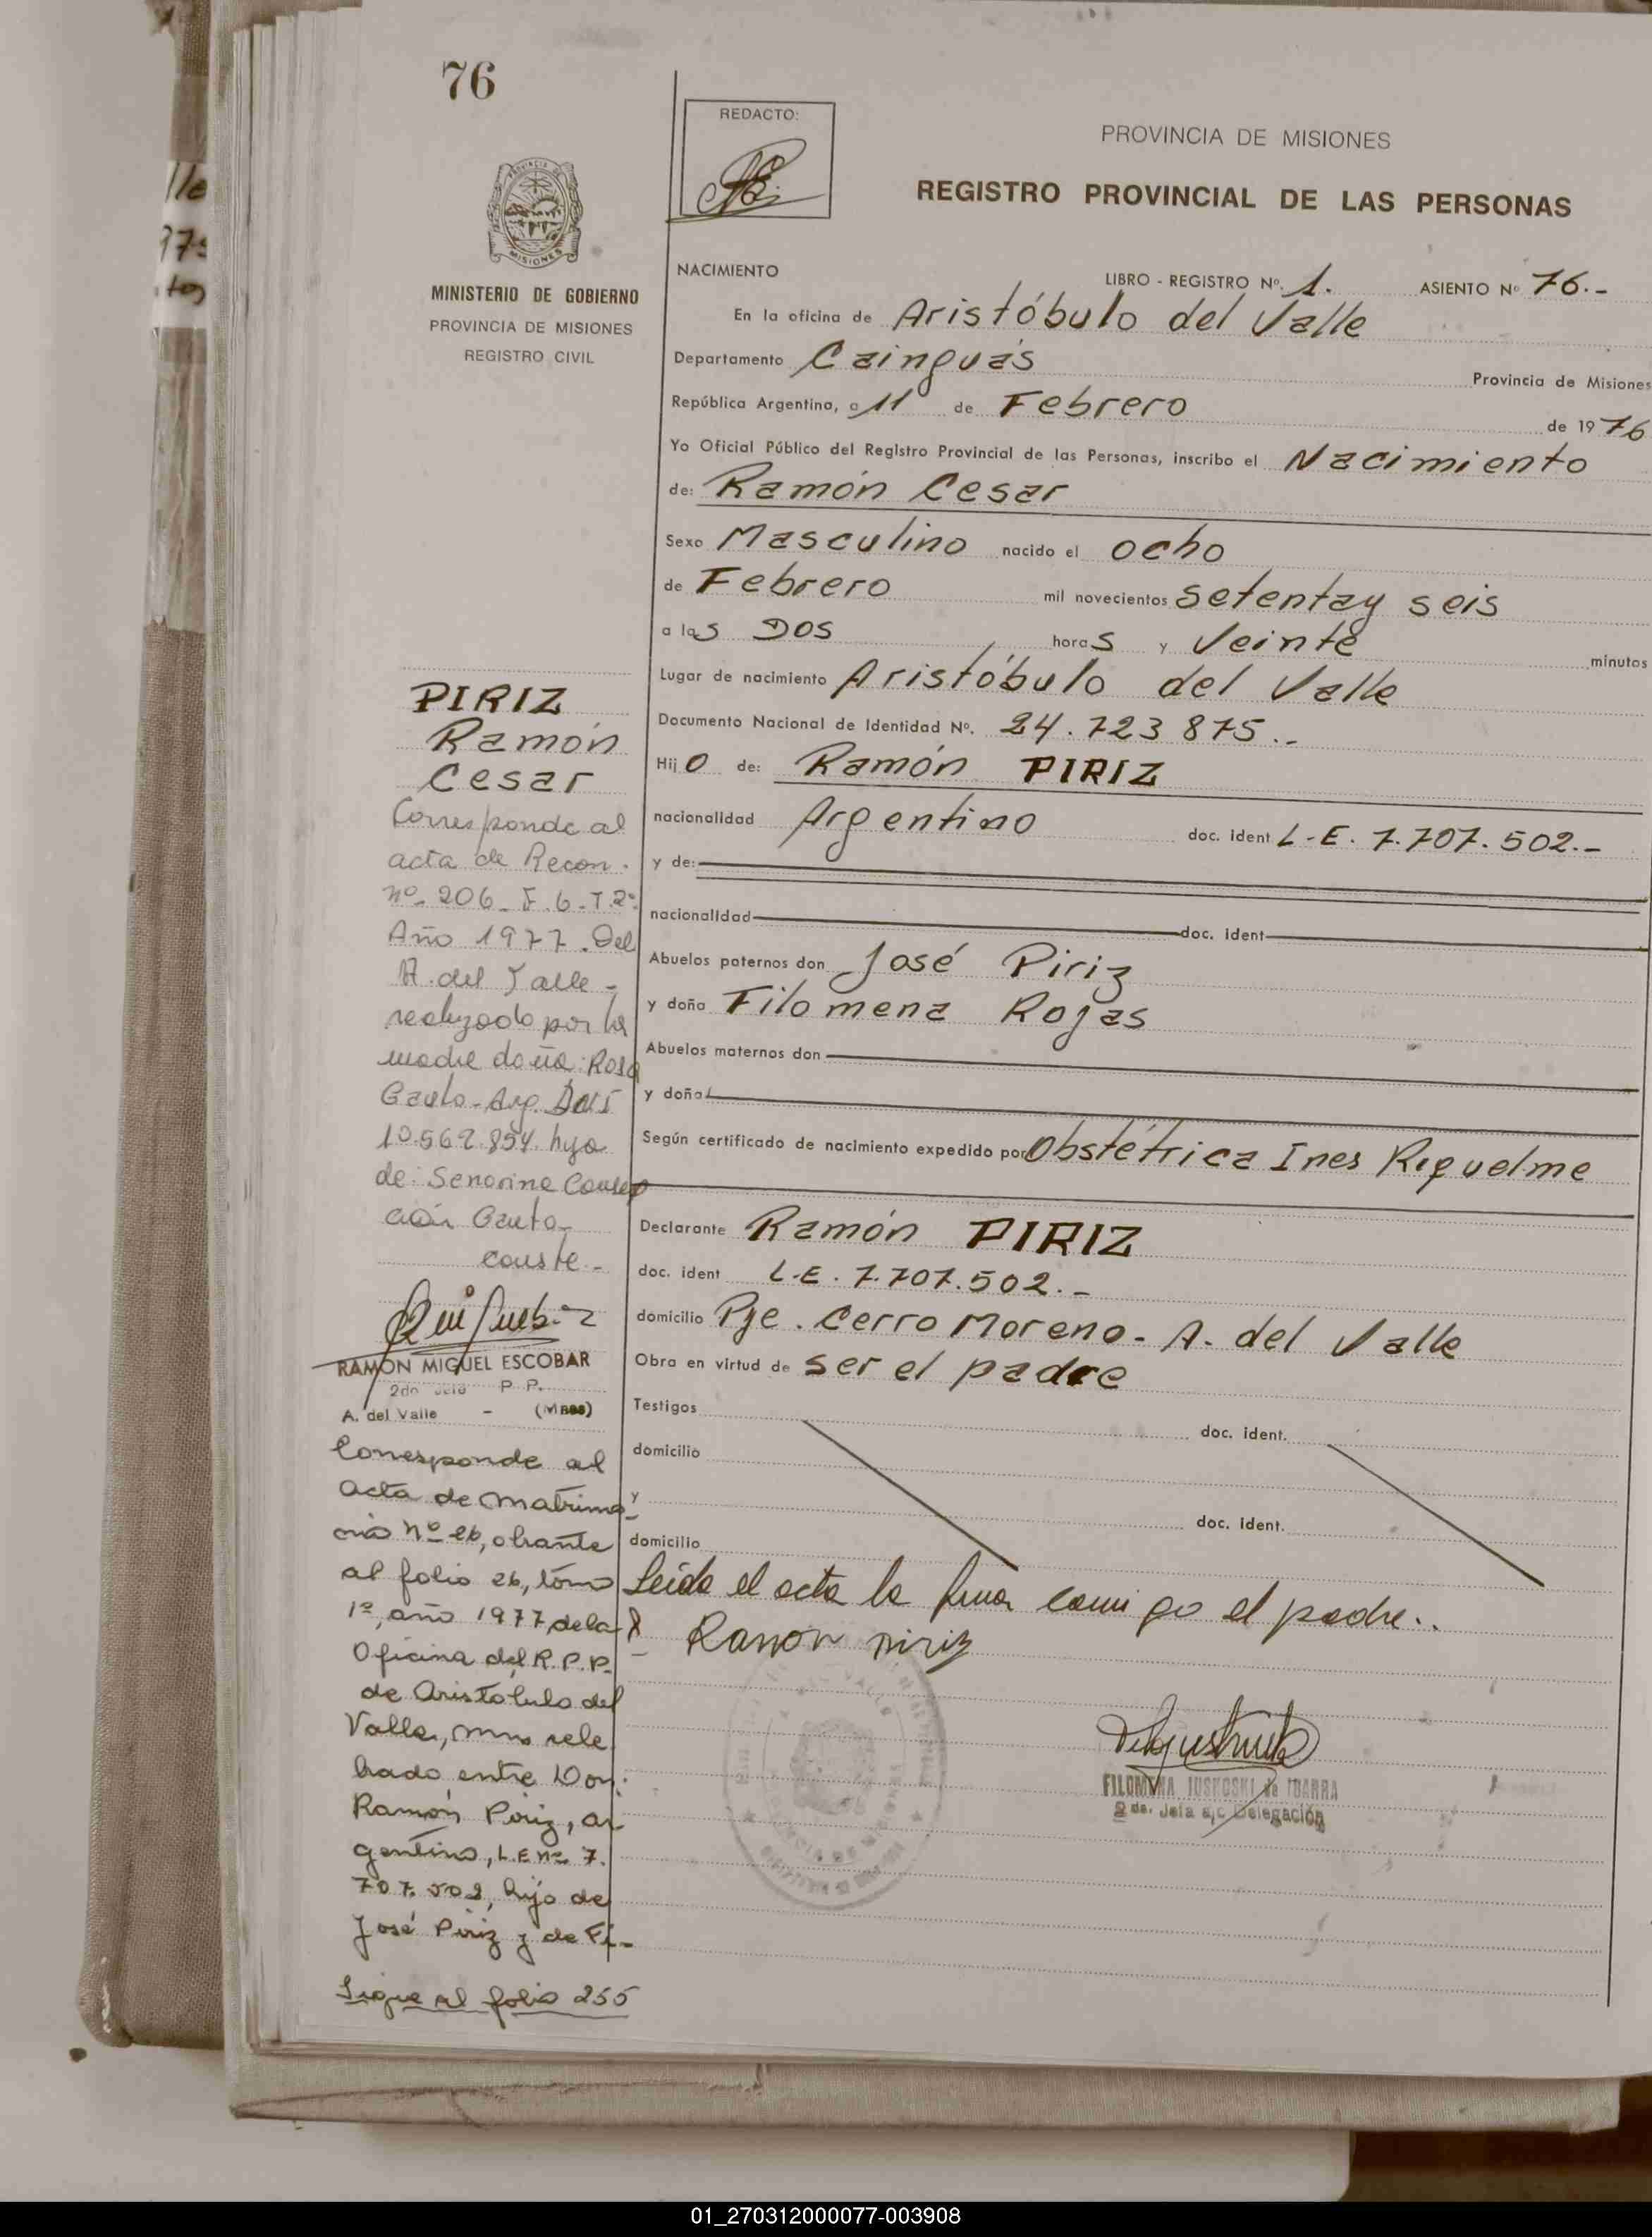 76
REDACTO:
PROVINCIA DE MISIONES
REGISTRO PROVINCIAL DE LAS PERSONAS
MINISTERIO DE GOBIERNO
PROVINCIA DE MISIONES
REGISTRO CIVIL
NACIMIENTO LIBRO - REGISTRO Nº. 1. ASIENTO Nº 76.-
En la oficina de Aristóbulo del Valle
Departamento Cainguás Provincia de Misiones
República Argentina, a 11 de Febrero de 1976
Yo Oficial Público del Registro Provincial de las Personas, inscribo el Nacimiento
de: Ramón Cesar
Sexo Masculino nacido el ocho
de Febrero mil novecientos setentay seis
a las DOS horas y Veinte minutos
Lugar de nacimiento Aristóbulo del Valle
Documento Nacional de Identidad Nº. 24.723875.-
Hijo de: Ramón PIRIZ
nacionalidad Argentino doc. ident L-E. 7.707.502.-
y de:
nacionalidad doc. ident
Abuelos paternos don José Piriz
y doña Filomena Rojas
Abuelos maternos don
y doña
Según certificado de nacimiento expedido por Obstétrica Ines Riquelme
Declarante Ramón PIRIZ
doc. ident L-E. 7.707.502.-
domicilio Pje. Cerro Moreno- A. del Valle
Obra en virtud de ser el padre
Testigos doc. ident.
domicilio
y doc. ident.
domicilio
Leida el acta la firma conmigo el padre..
Ramon Piriz
FILOMENA JUSKOSKI de IBARRA
2da. Jefa a/c Delegación
PIRIZ
Ramón
Cesar
Corresponde al
acta de Recon.
nº 206_F.6-T.2º
Año 1977. Del
A. del Valle -
realizado por la
madre doña: Rosa
Gauto-Arg. DNI
10.562.854. hija
de: Senorina Consep
ción Gauto-
conste.-
RAMON MIGUEL ESCOBAR
2do P. P.
A. del Valle - (Mnes)
Corresponde al
acta de matrimo
nio nº 26, obrante
al folio 26, tomo
1º, año 1977, de la
Oficina del R.P.P.
de Aristobulo del
Valle, mns cele
brado entre Don:
Ramón Piriz, ar
gentino, L.E nº 7.
707.502, hijo de
José Piriz y de Fi-
Sigue al folio 255
01_270312000077-003908